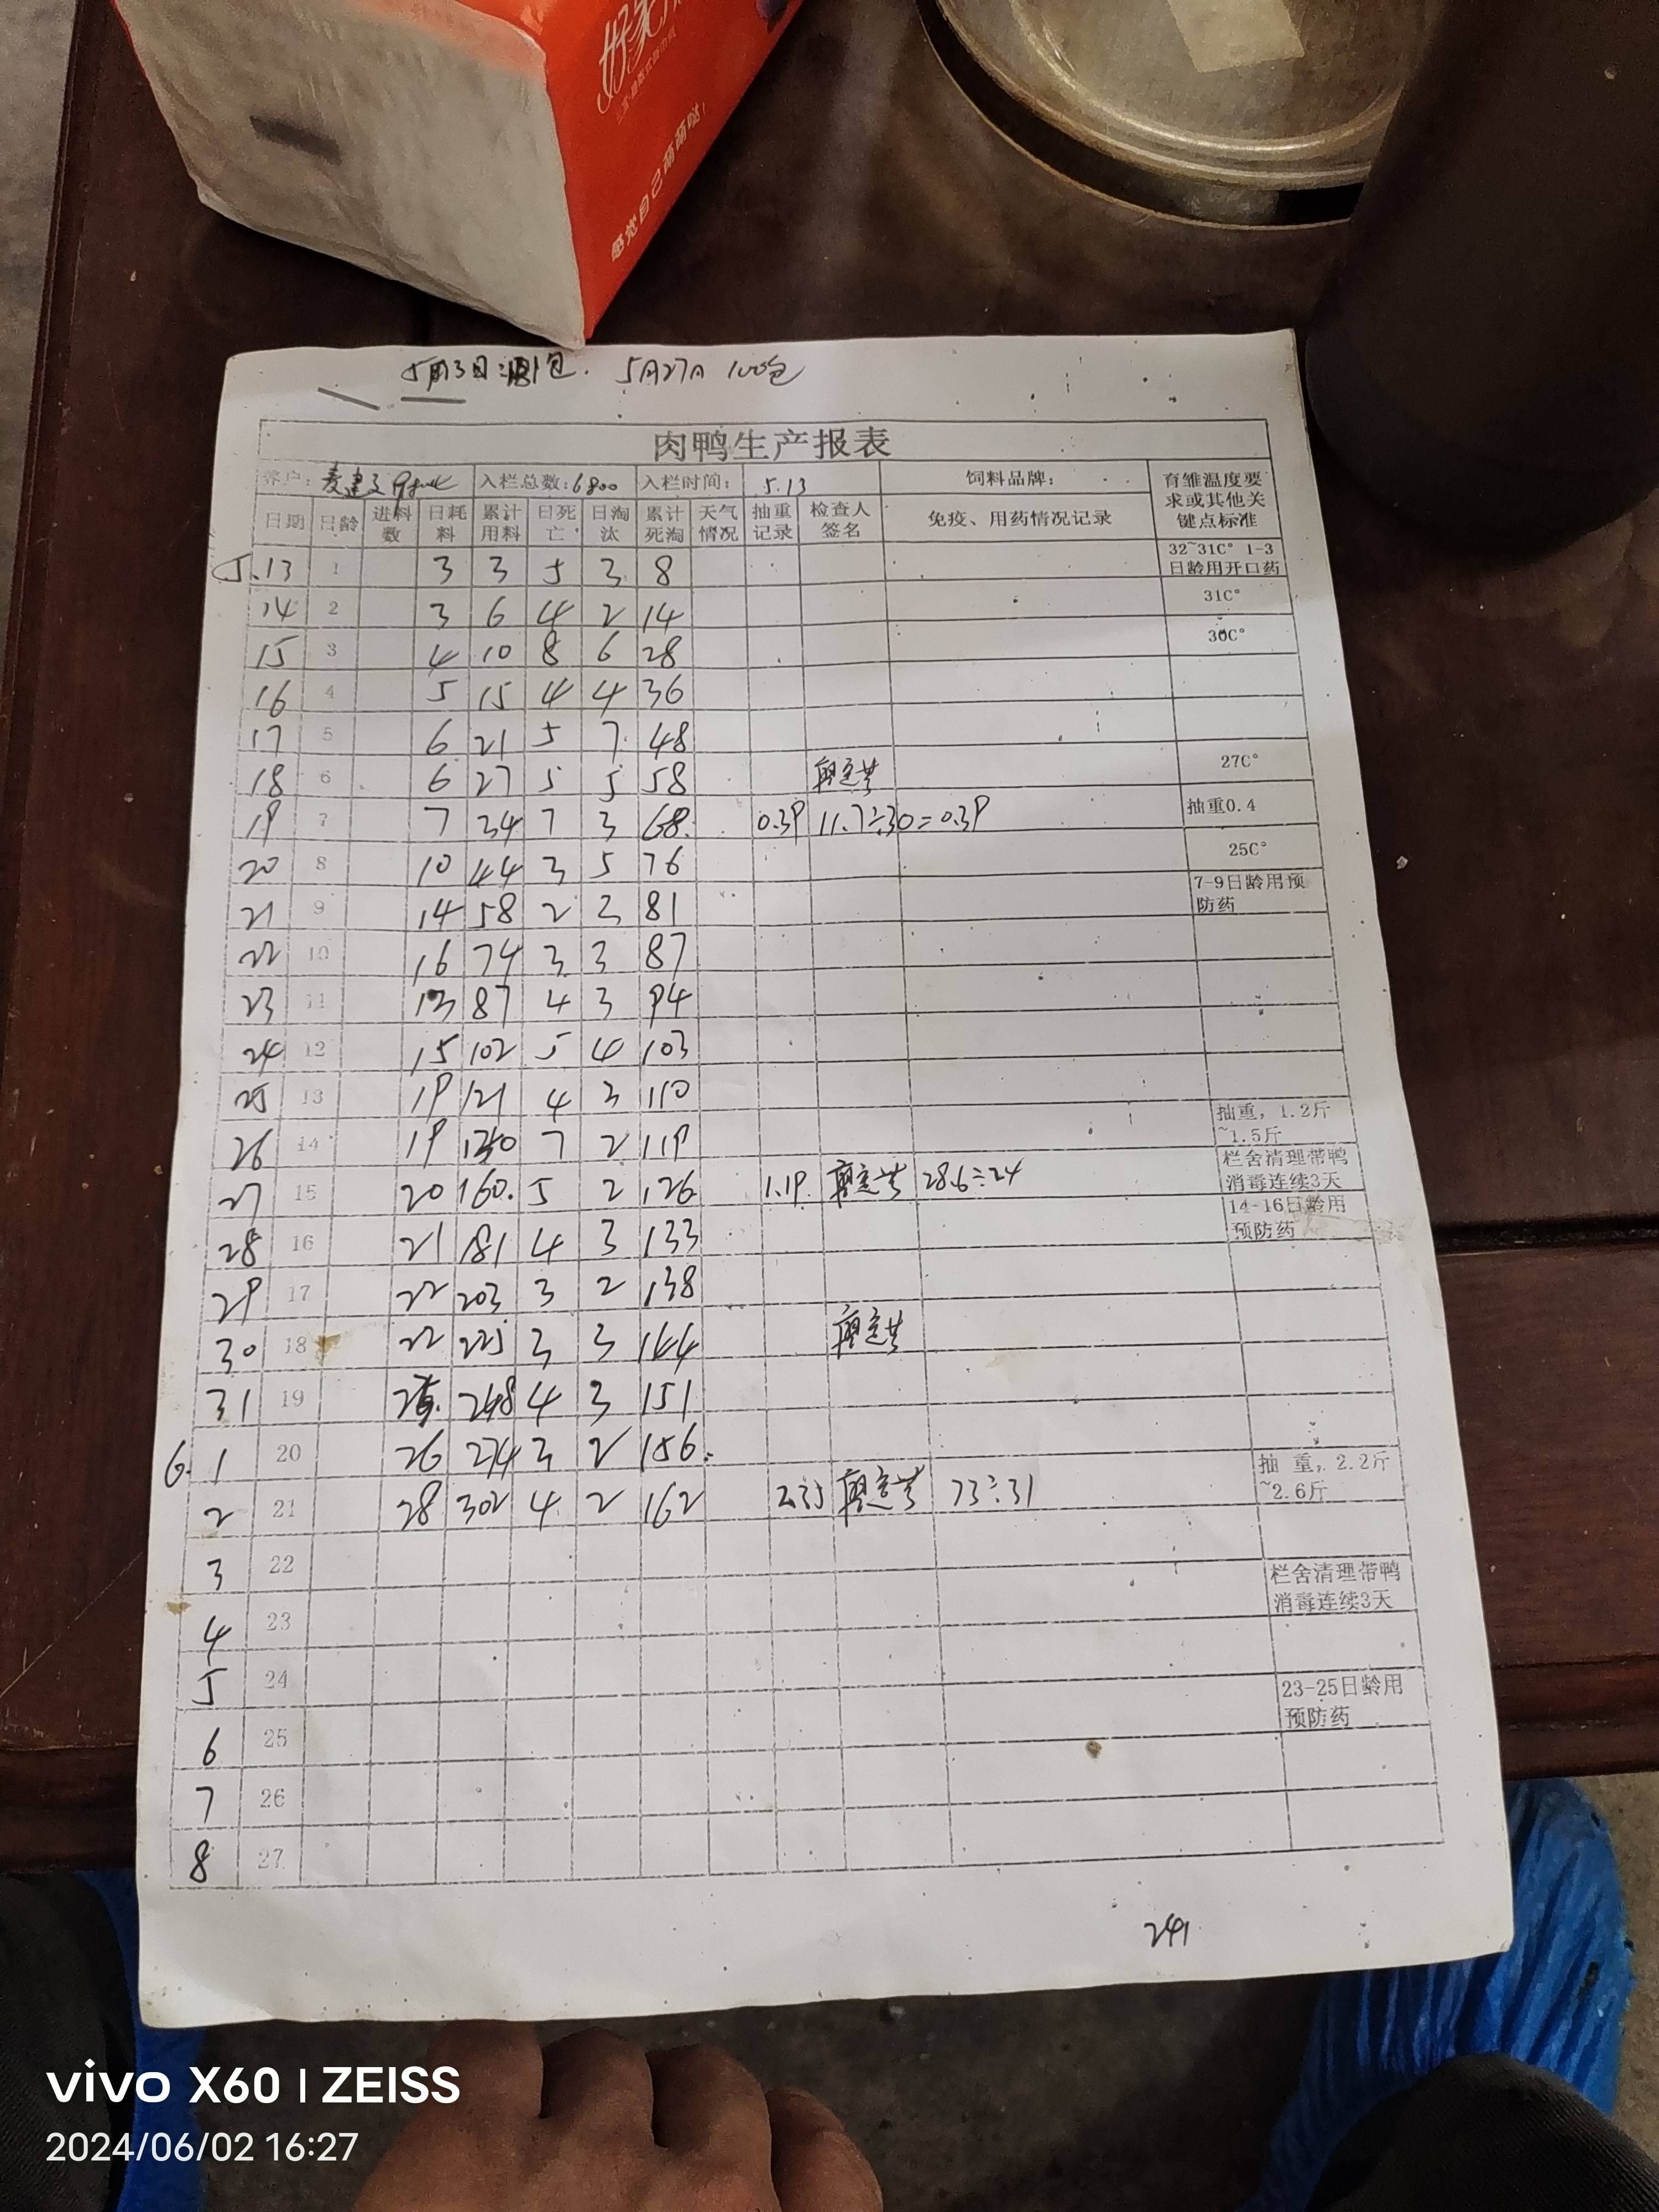 感觉自己萌萌哒!
5月27日 100包
肉鸭生产报表
养户: 入栏总数:6800 入栏时间: 5.13 饲料品牌: 育雏温度要求或其他关键点标准
日期 日龄 进料数 日耗料 累计用料 日死亡 日淘汰 累计死淘 天气情况 抽重记录 检查人签名 免疫、用药情况记录
5.13 1 3 3 5 3 8 32~31C° 1-3日龄用开口药
14 2 3 6 4 2 14 31C°
15 3 4 10 8 6 28 30C°
16 4 5 15 4 4 36
17 5 6 21 5 7 48
18 6 6 27 5 5 58 27C°
19 7 7 34 7 3 68 0.39 11.7÷30=0.39 抽重0.4
20 8 10 44 3 5 76 25C°
21 9 14 58 2 3 81 7-9日龄用预防药
22 10 16 74 3 3 87
23 11 13 87 4 3 94
24 12 15 102 5 4 103
25 13 19 121 4 3 110
26 14 19 140 7 2 119 抽重, 1.2斤~1.5斤
27 15 20 160 5 2 126 1.19 28.6÷24 栏舍清理带鸭消毒连续3天
28 16 21 181 4 3 133 14-16日龄用预防药
29 17 22 203 3 2 138
30 18 22 225 3 3 144
31 19 248 4 3 151
6.1 20 26 274 3 2 156
2 21 28 302 4 2 162 2.35 73÷31 抽 重, 2.2斤~2.6斤
3 22 栏舍清理带鸭消毒连续3天
4 23
5 24 23-25日龄用预防药
6 25
7 26
8 27
241
vivo X60 | ZEISS
2024/06/02 16:27